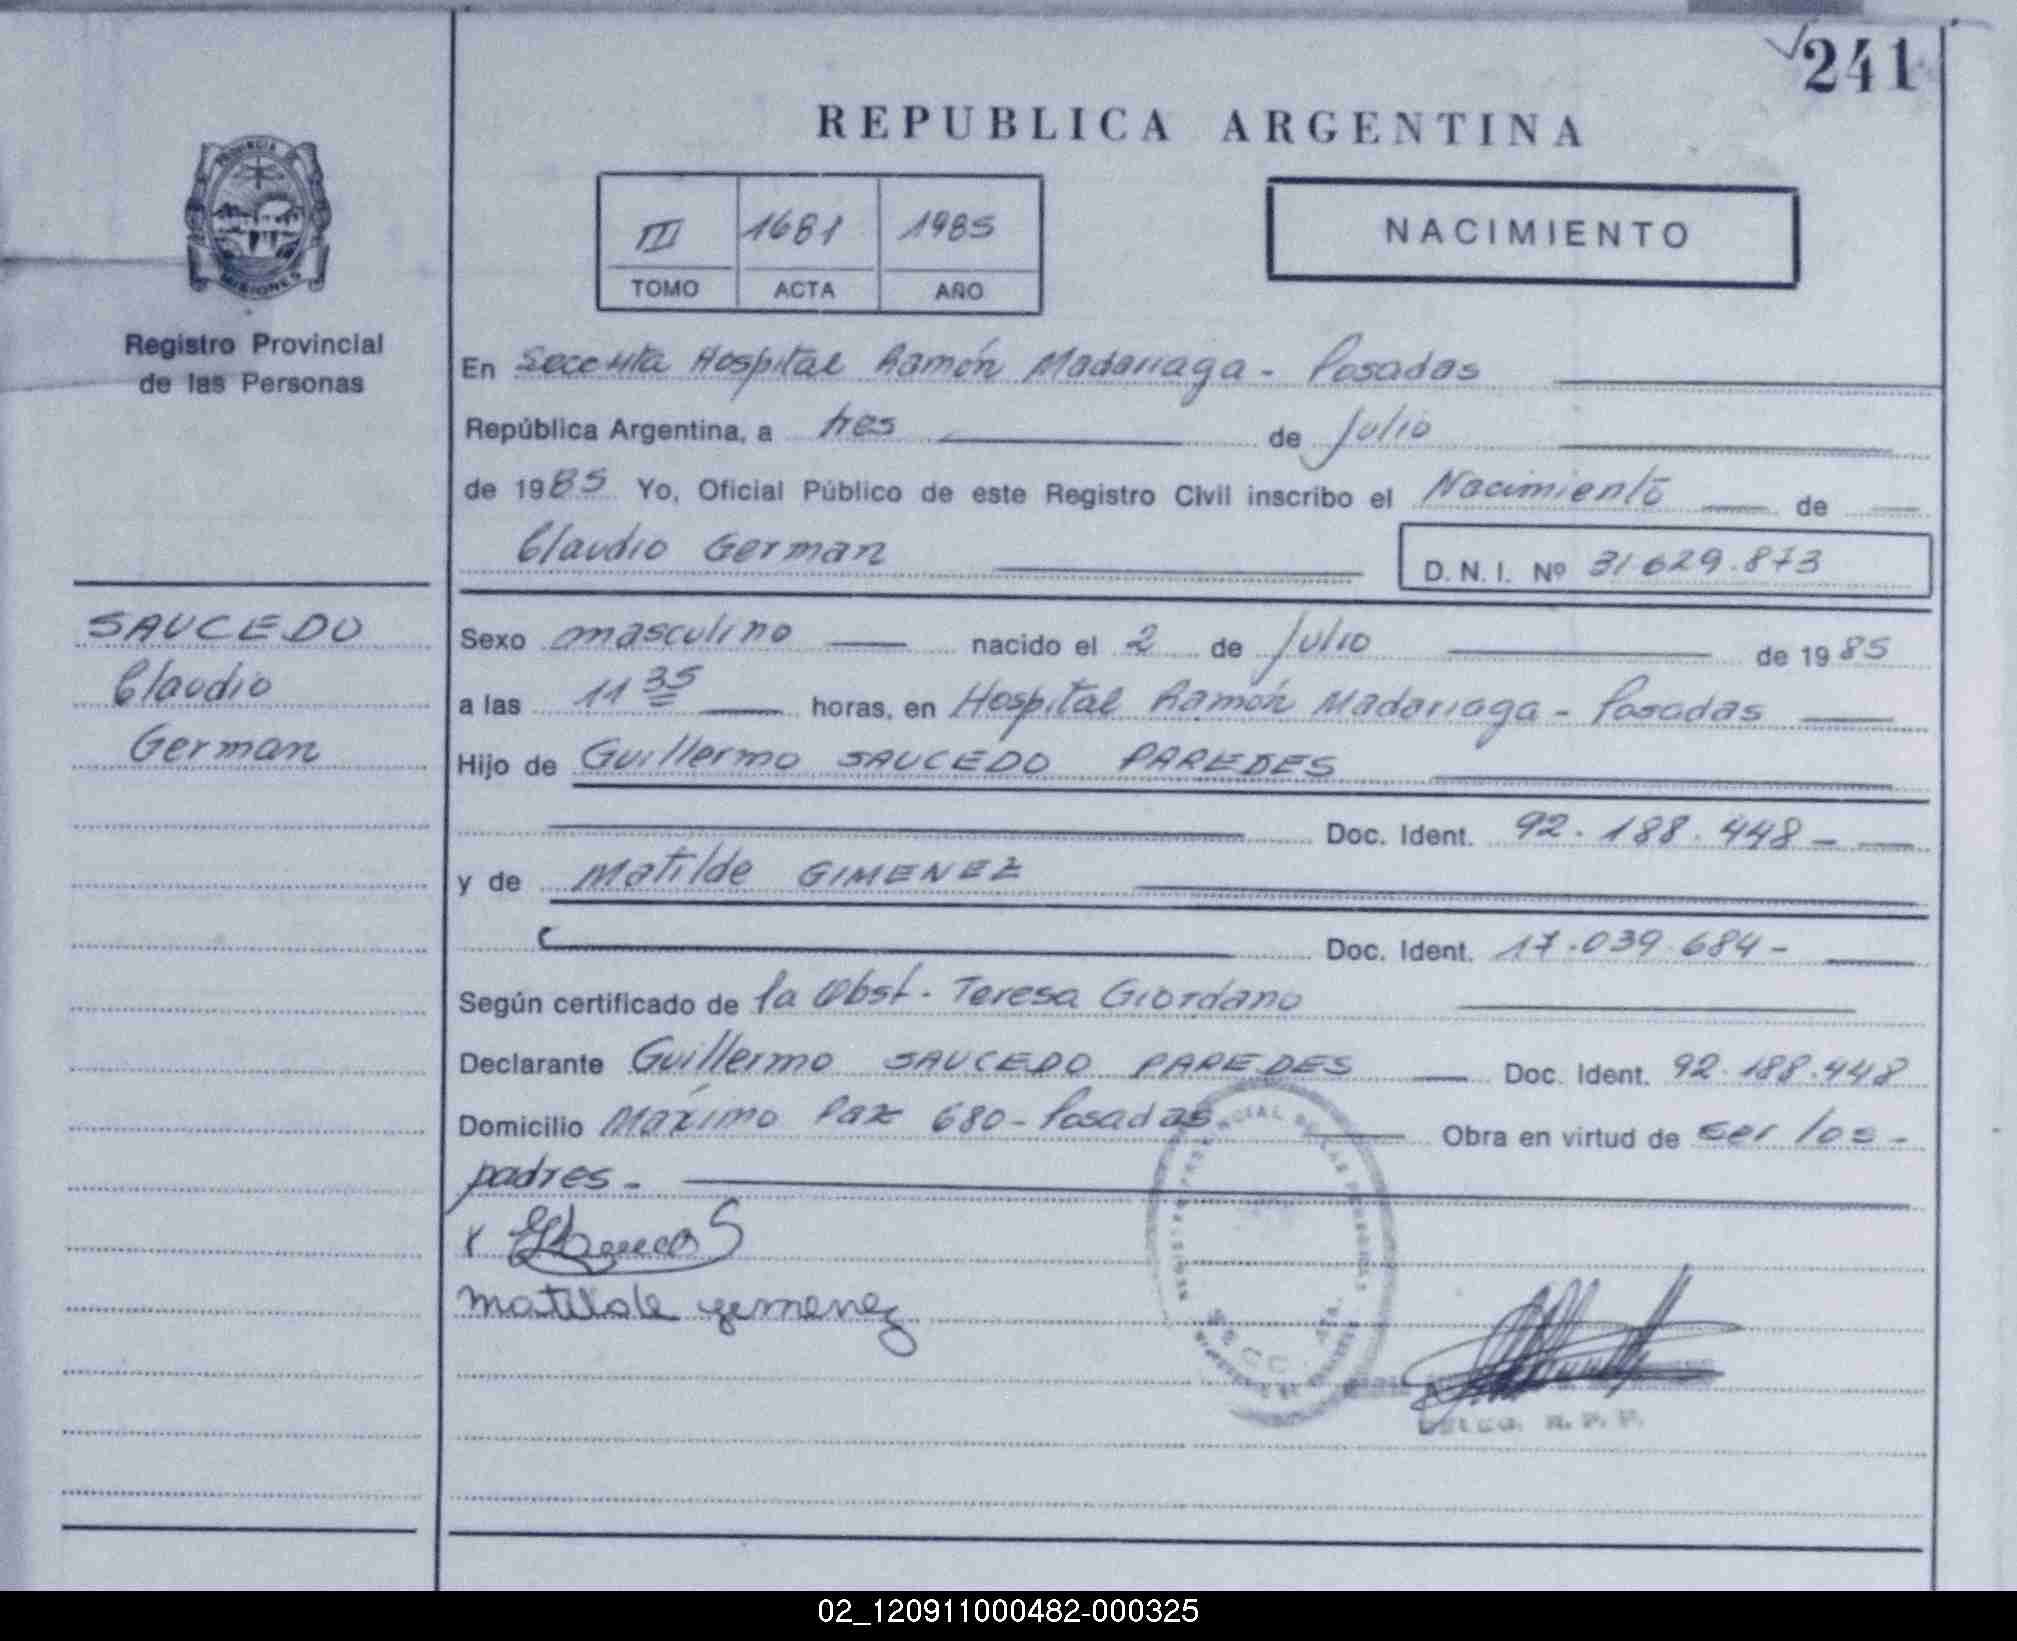 241
REPUBLICA ARGENTINA
PROVINCIA DE
MISIONES
Registro Provincial
de las Personas
III 1681 1985
TOMO ACTA AÑO
NACIMIENTO
En Secc 4ta Hospital Ramón Madariaga - Posadas
República Argentina, a tres de Julio
de 1985 Yo, Oficial Público de este Registro Civil inscribo el Nacimiento de
Claudio German D. N. I. Nº 31629.873
SAUCEDO
Claudio
German
Sexo masculino nacido el 2 de Julio de 1985
a las 11 35 horas, en Hospital Ramón Madariaga - Posadas
Hijo de Guillermo SAUCEDO PAREDES
Doc. Ident. 92.188.448 -
y de Matilde GIMENEZ
Doc. Ident. 17.039.684 -
Según certificado de la Obst. Teresa Giordano
Declarante Guillermo SAUCEDO PAREDES Doc. Ident. 92.188.448
Domicilio Máximo Paz 680 - Posadas Obra en virtud de ser los -
padres -
x
Matilde gimenez
R. P. P.
02_120911000482-000325